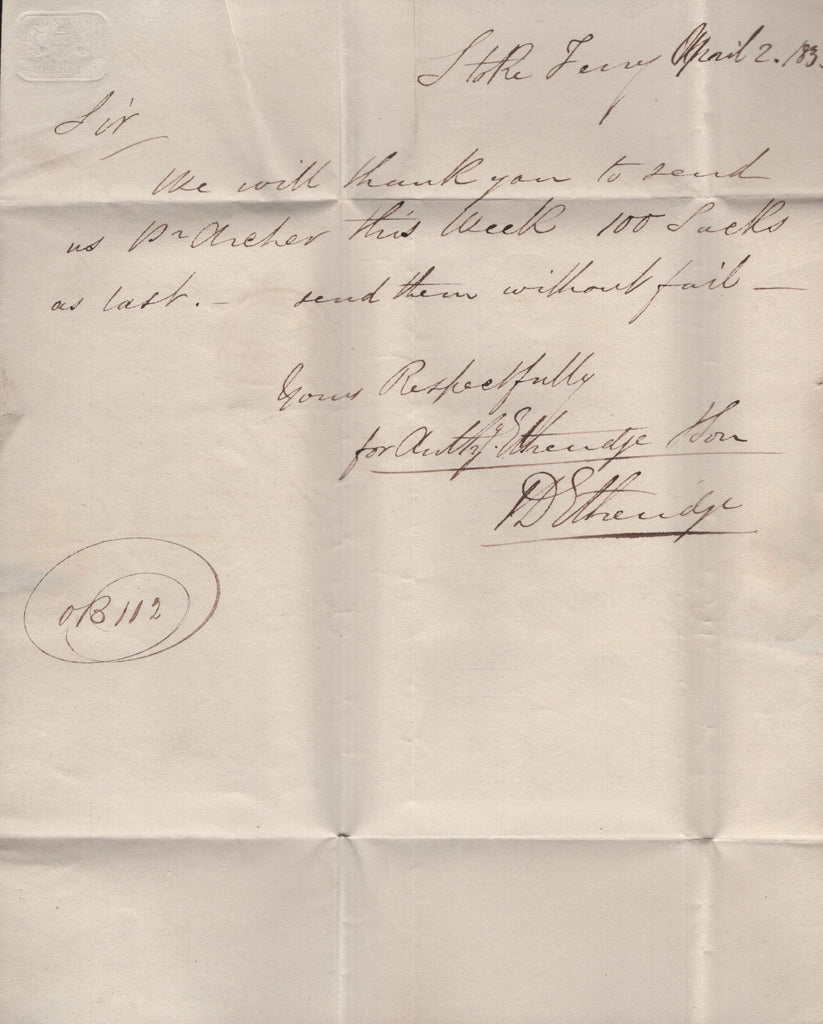 LONDON
Stoke Ferry April 2. 183
Sir
We will thank you to send
us Pr Archer this Week 100 Sacks
as last. — send them without fail —
Yours Respectfully
for Anthy. Etheridge & Son
D Etheridge
OB 112